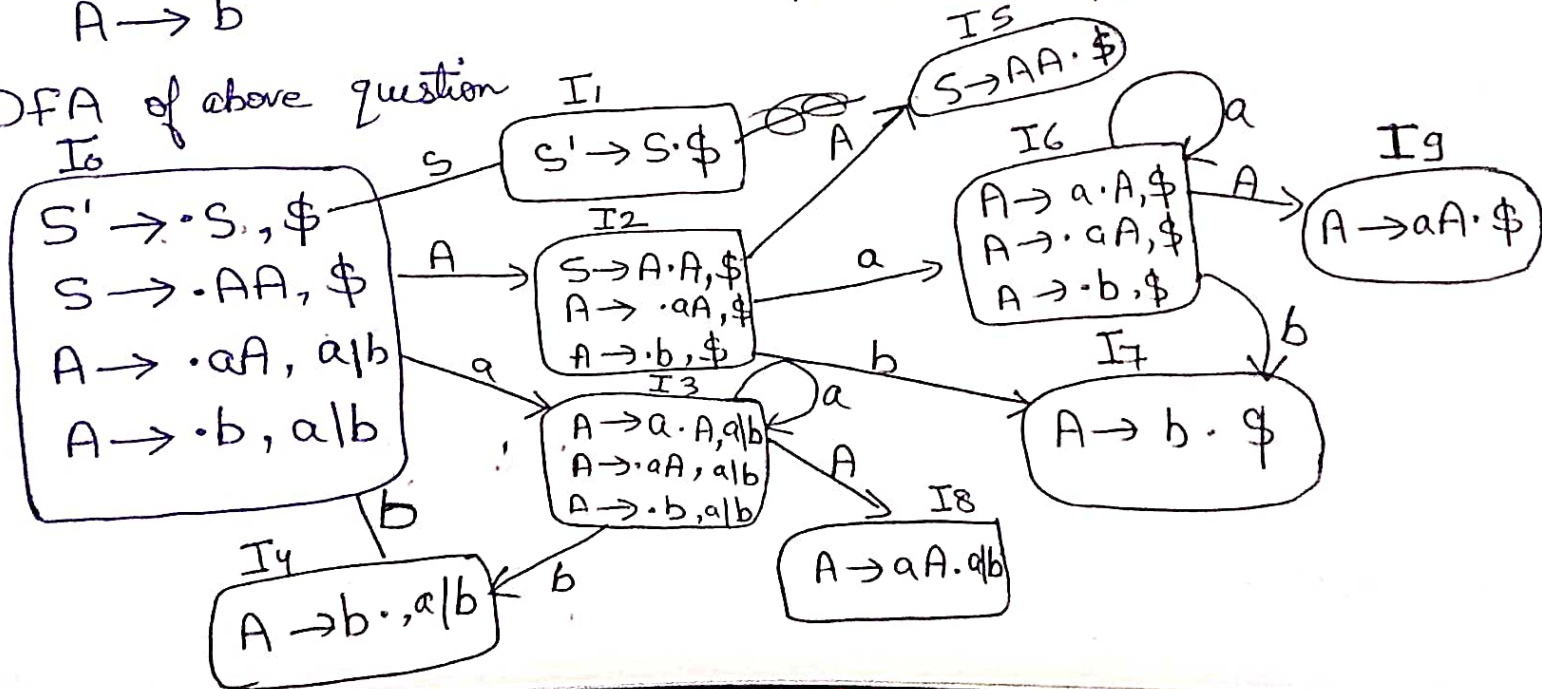 A → b
DFA of above question
I0
S' → ·S, $
S → ·AA, $
A → ·aA, a|b
A → ·b, a|b
S
I1
S' → S·$
A
I2
S → A·A, $
A → ·aA, $
A → ·b, $
A
I5
S → AA·$
a
I6
A → a·A, $
A → ·aA, $
A → ·b, $
a
A
I9
A → aA·$
b
b
I7
A → b·$
a
I3
A → a·A, a|b
A → ·aA, a|b
A → ·b, a|b
a
A
I8
A → aA.a|b
b
b
I4
A → b·, a|b